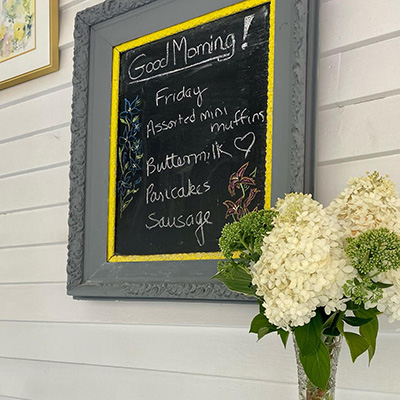 Good Morning!
Friday
Assorted mini
muffins
Buttermilk ♡
Pancakes
Sausage